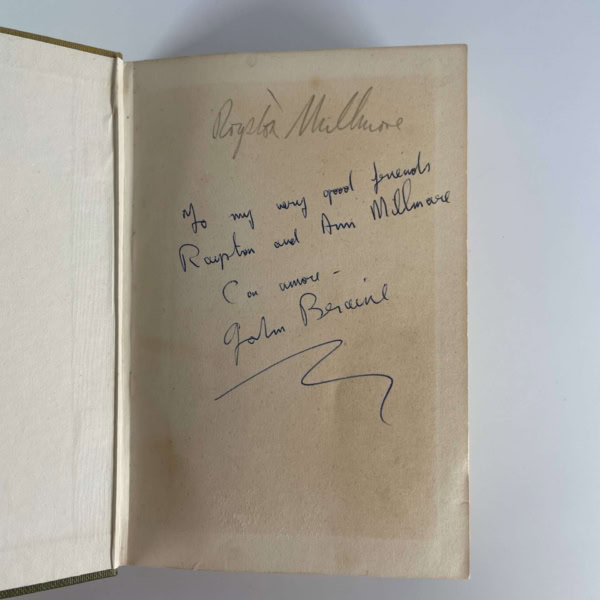 Royston Millmore
To my very good friends
Royston and Ann Millmore
Con amore -
John Beraine